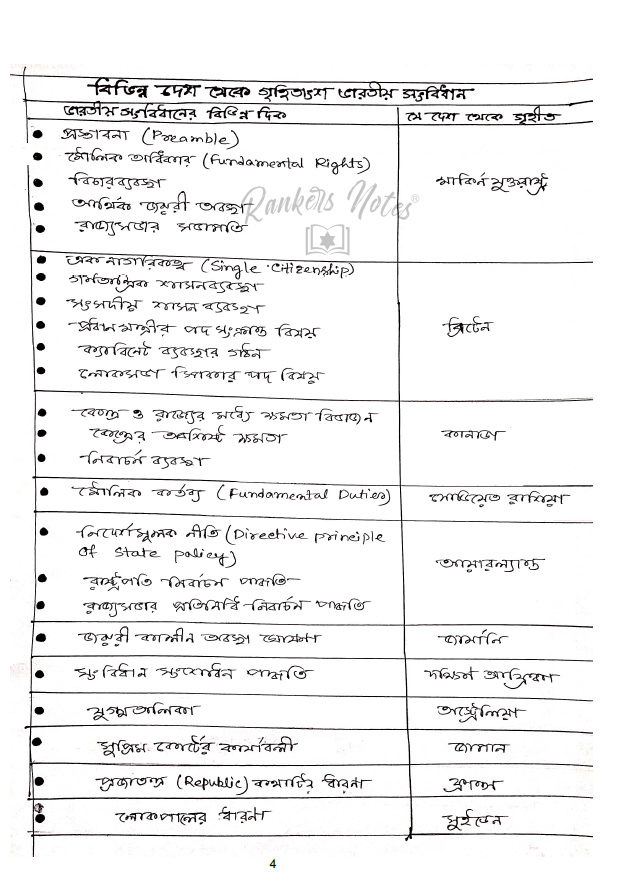 বিভিন্ন দেশ থেকে গৃহিতাংশ ভারতীয় সংবিধান
ভারতীয় সংবিধানের বিভিন্ন দিক
যে দেশ থেকে গৃহীত
প্রস্তাবনা (Preamble)
মৌলিক অধিকার (Fundamental Rights)
বিচারব্যবস্থা
মার্কিন যুক্তরাষ্ট্র
আর্থিক জরুরী অবস্থা
Rankers Notes®
রাজ্যসভার সভাপতি
এক নাগরিকত্ব (Single Citizenship)
গণতান্ত্রিক শাসনব্যবস্থা
সংসদীয় শাসন ব্যবস্থা
প্রধান মন্ত্রীর পদ সংক্রান্ত বিষয়
ব্রিটেন
ক্যাবিনেট ব্যবস্থার গঠন
লোকসভা স্পিকার পদ বিষয়
কেন্দ্র ও রাজ্যের মধ্যে ক্ষমতা বিভাজন
কেন্দ্রের অবশিষ্ট ক্ষমতা
কানাডা
নির্বাচন ব্যবস্থা
মৌলিক কর্তব্য (Fundamental Duties)
সোভিয়েত রাশিয়া
নির্দেশমূলক নীতি (Directive principle
of state policy)
আয়ারল্যান্ড
রাষ্ট্রপতি নির্বাচন পদ্ধতি
রাজ্যসভার প্রতিনিধি নির্বাচন পদ্ধতি
জরুরী কালীন অবস্থা ঘোষণা
জার্মানি
সংবিধান সংশোধন পদ্ধতি
দক্ষিণ আফ্রিকা
যুগ্মতালিকা
অস্ট্রেলিয়া
সুপ্রিম কোর্টের কার্যাবলী
জাপান
প্রজাতন্ত্র (Republic) কথাটির ধারণা
ফ্রান্স
লোকপালের ধারণা
সুইডেন
4